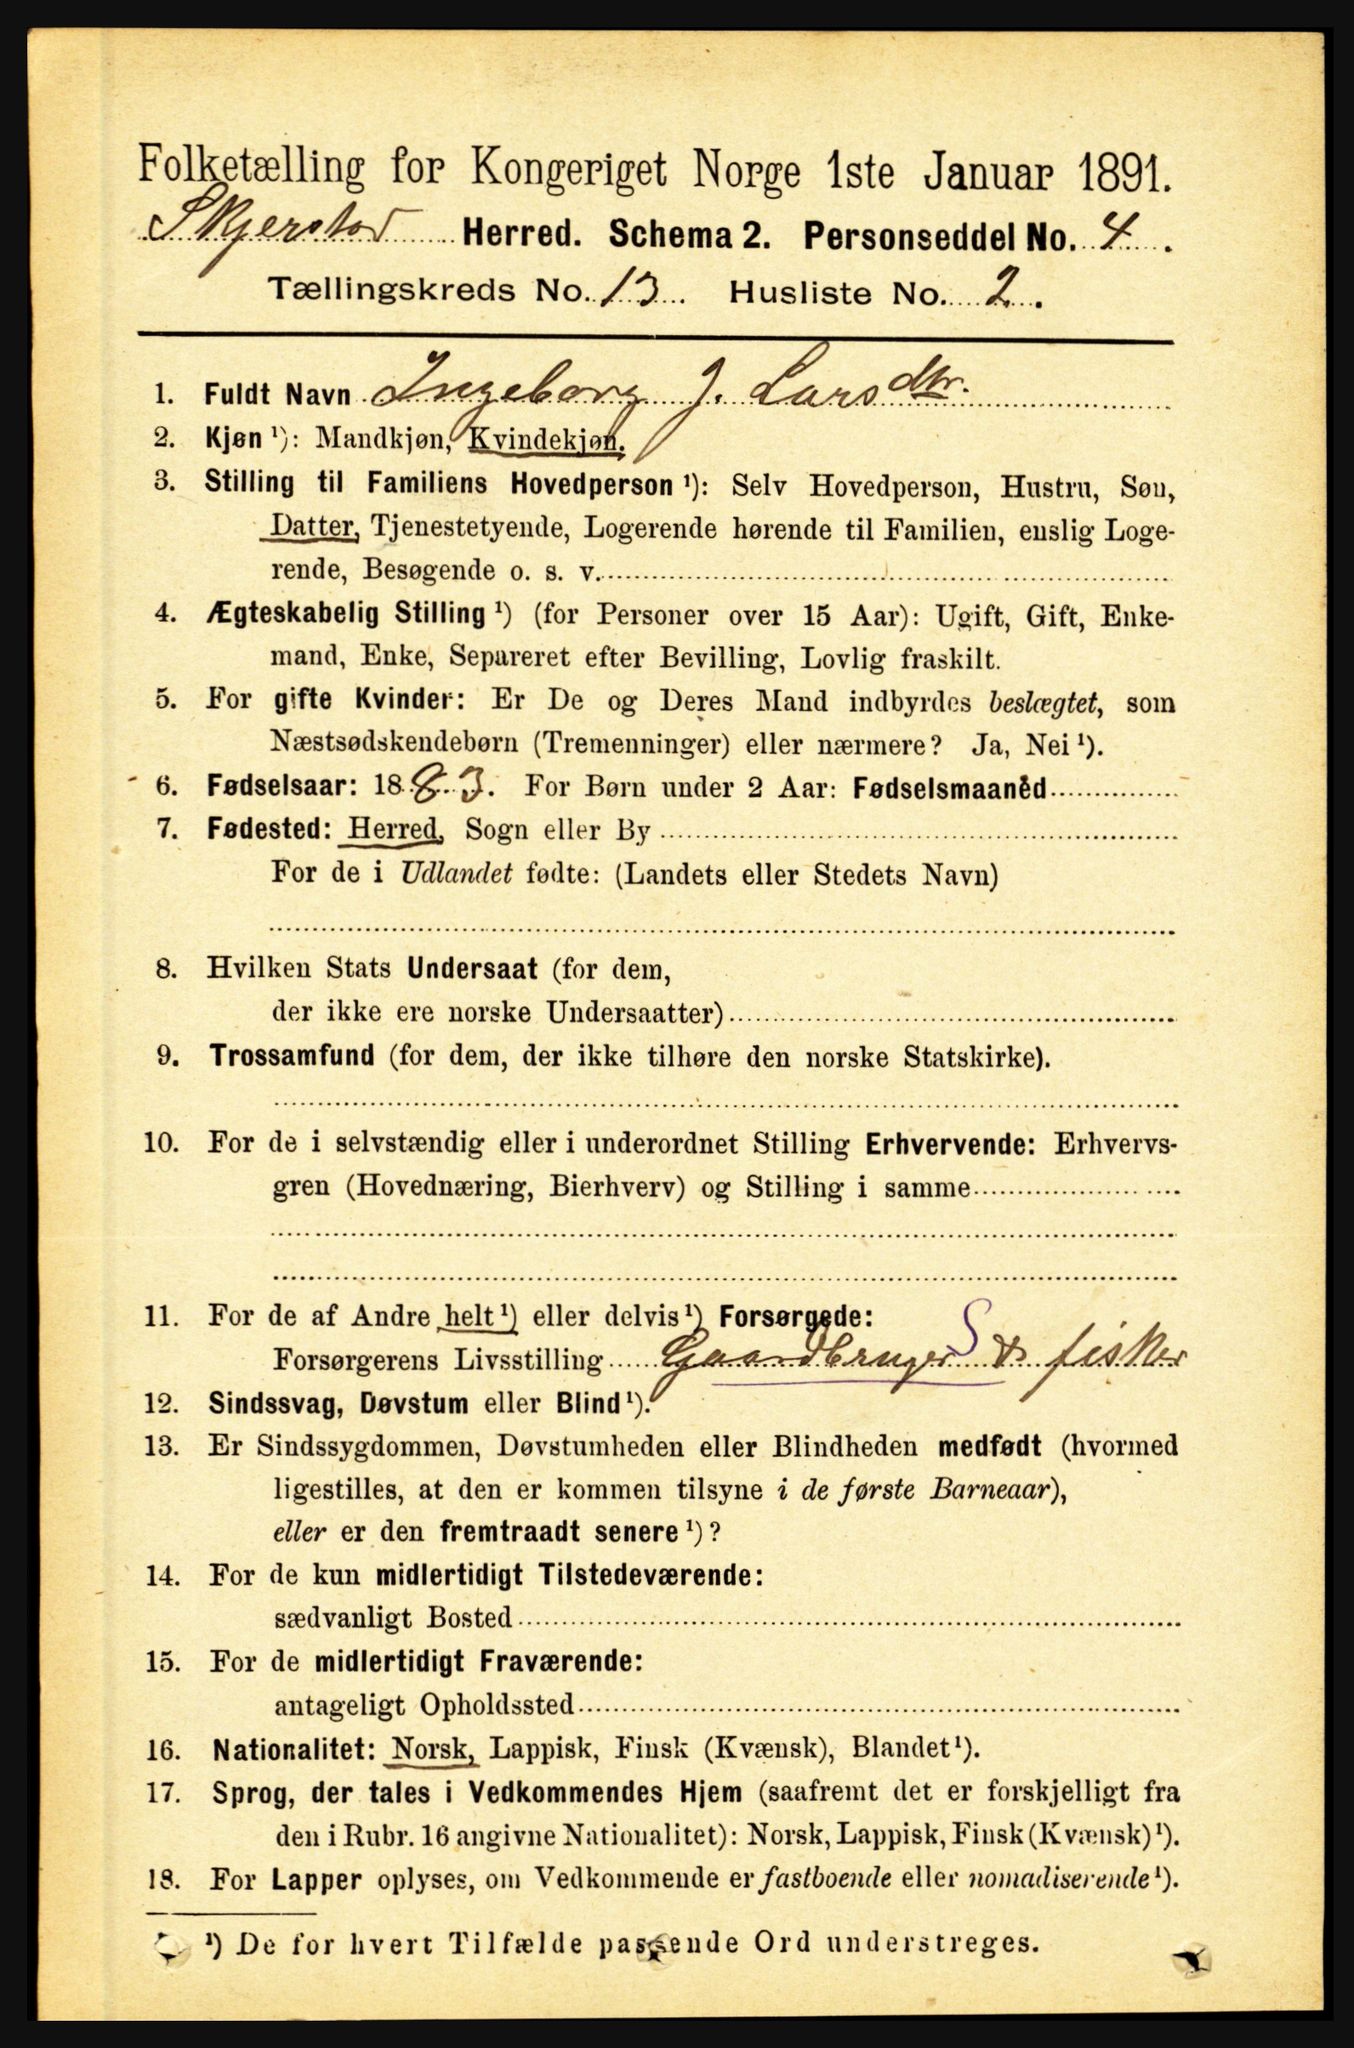 Folketælling for Kongeriget Norge 1ste Januar 1891.
Skjerstad Herred. Schema 2. Personseddel No. 4.
Tællingskreds No. 13. Husliste No. 2.
1. Fuldt Navn Ingeborg J. Larsdtr.
2. Kjøn ¹): Mandkjøn, Kvindekjøn.
3. Stilling til Familiens Hovedperson ¹): Selv Hovedperson, Hustru, Søn,
Datter, Tjenestetyende, Logerende hørende til Familien, enslig Loge-
rende, Besøgende o. s. v.
4. Ægteskabelig Stilling ¹) (for Personer over 15 Aar): Ugift, Gift, Enke-
mand, Enke, Separeret efter Bevilling, Lovlig fraskilt.
5. For gifte Kvinder: Er De og Deres Mand indbyrdes beslægtet, som
Næstsødskendebørn (Tremenninger) eller nærmere? Ja, Nei ¹).
6. Fødselsaar: 1883. For Børn under 2 Aar: Fødselsmaaned
7. Fødested: Herred, Sogn eller By
For de i Udlandet fødte: (Landets eller Stedets Navn)
8. Hvilken Stats Undersaat (for dem,
der ikke ere norske Undersaatter)
9. Trossamfund (for dem, der ikke tilhøre den norske Statskirke).
10. For de i selvstændig eller i underordnet Stilling Erhvervende: Erhvervs-
gren (Hovednæring, Bierhverv) og Stilling i samme
11. For de af Andre helt ¹) eller delvis ¹) Forsørgede:
Forsørgerens Livsstilling Gaardbruger S & fisker
12. Sindssvag, Døvstum eller Blind ¹).
13. Er Sindssygdommen, Døvstumheden eller Blindheden medfødt (hvormed
ligestilles, at den er kommen tilsyne i de første Barneaar),
eller er den fremtraadt senere ¹)?
14. For de kun midlertidigt Tilstedeværende:
sædvanligt Bosted
15. For de midlertidigt Fraværende:
antageligt Opholdssted
16. Nationalitet: Norsk, Lappisk, Finsk (Kvænsk), Blandet ¹).
17. Sprog, der tales i Vedkommendes Hjem (saafremt det er forskjelligt fra
den i Rubr. 16 angivne Nationalitet): Norsk, Lappisk, Finsk (Kvænsk) ¹).
18. For Lapper oplyses, om Vedkommende er fastboende eller nomadiserende ¹).
¹) De for hvert Tilfælde passende Ord understreges.